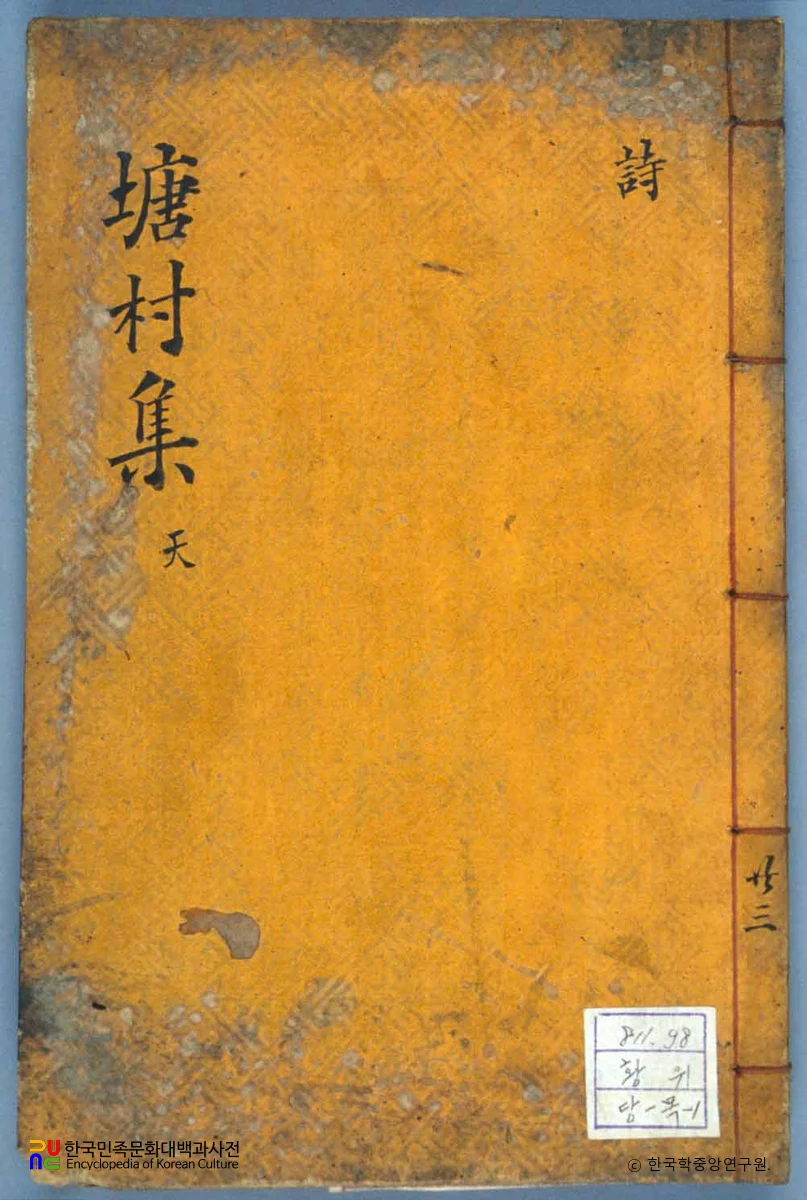 塘村集 天
詩
共三
811.98
황위
당-복-1
한국민족문화대백과사전
Encyclopedia of Korean Culture
ⓒ 한국학중앙연구원.